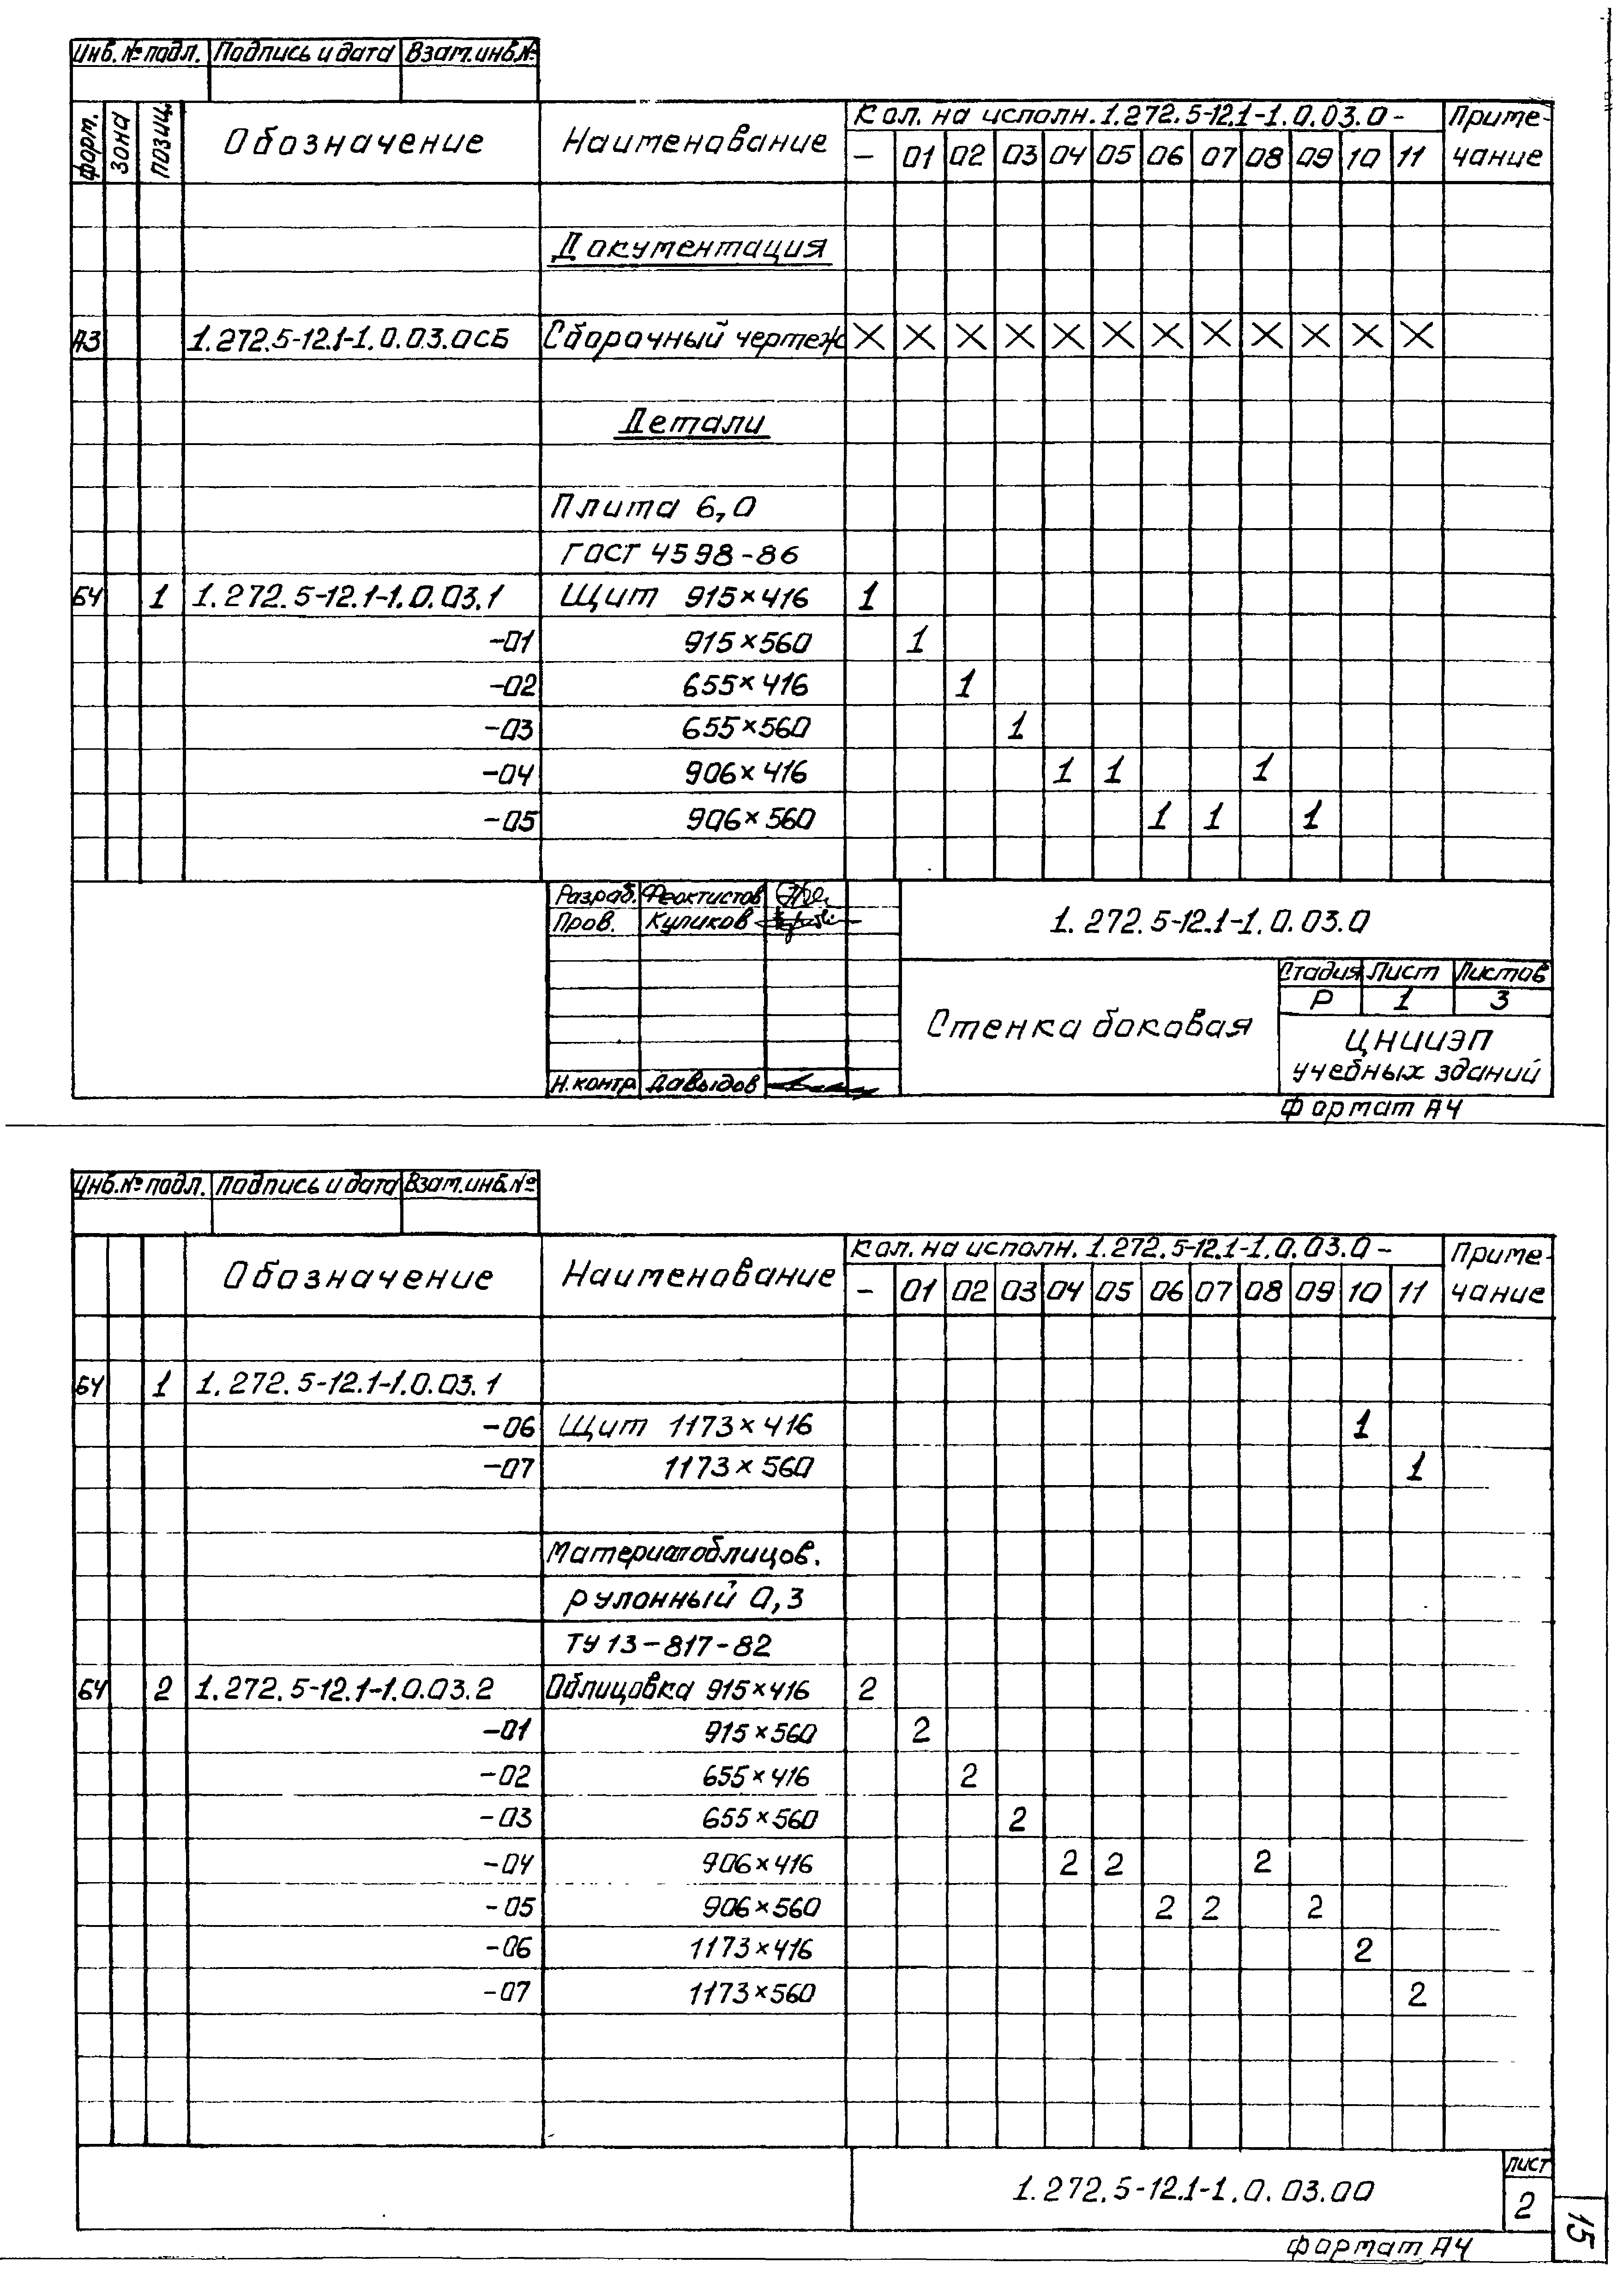 Инв. № подл. Подпись и дата Взам. инв. №
форм. зона позиц. Обозначение Наименование Кол. на исполн. 1.272.5-12.1-1.0.03.0- Приме-
- 01 02 03 04 05 06 07 08 09 10 11 чание
Документация
А3 1.272.5-12.1-1.0.03.0СБ Сборочный чертеж X X X X X X X X X X X X
Детали
Плита 6,0
ГОСТ 4598-86
БЧ 1 1.272.5-12.1-1.0.03.1 Щит 915×416 1
-01 915×560 1
-02 655×416 1
-03 655×560 1
-04 906×416 1 1 1
-05 906×560 1 1 1
Разраб. Феоктистов
Пров. Куликов
1.272.5-12.1-1.0.03.0
Стенка боковая
Стадия Лист Листов
Р 1 3
ЦНИИЭП
учебных зданий
Н.контр. Давыдов
Формат А4
Инв. № подл. Подпись и дата Взам. инв. №
Обозначение Наименование Кол. на исполн. 1.272.5-12.1-1.0.03.0- Приме-
- 01 02 03 04 05 06 07 08 09 10 11 чание
БЧ 1 1.272.5-12.1-1.0.03.1
-06 Щит 1173×416 1
-07 1173×560 1
Материал облицов.
рулонный 0,3
ТУ 13-817-82
БЧ 2 1.272.5-12.1-1.0.03.2 Облицовка 915×416 2
-01 915×560 2
-02 655×416 2
-03 655×560 2
-04 906×416 2 2 2
-05 906×560 2 2 2
-06 1173×416 2
-07 1173×560 2
1.272.5-12.1-1.0.03.00
лист
2
15
Формат А4